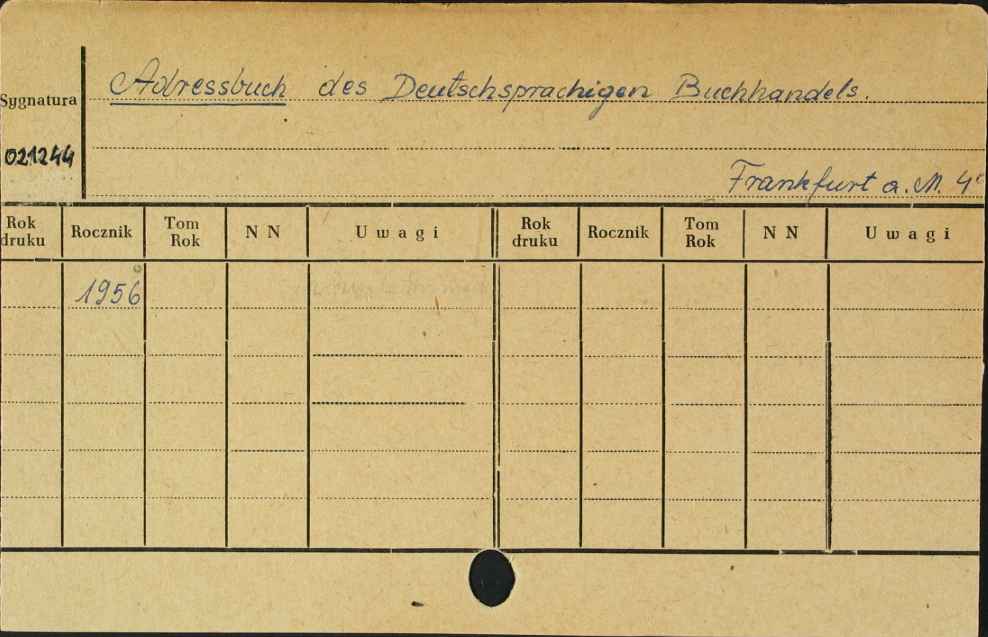 Adressbuch des Deutschsprachigen Buchhandels.
Sygnatura
021244
Frankfurt a. M. 4°
Rok druku Rocznik Tom Rok N N Uwagi Rok druku Rocznik Tom Rok N N Uwagi
1956